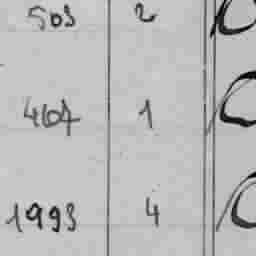 503 2
467 1
1993 4